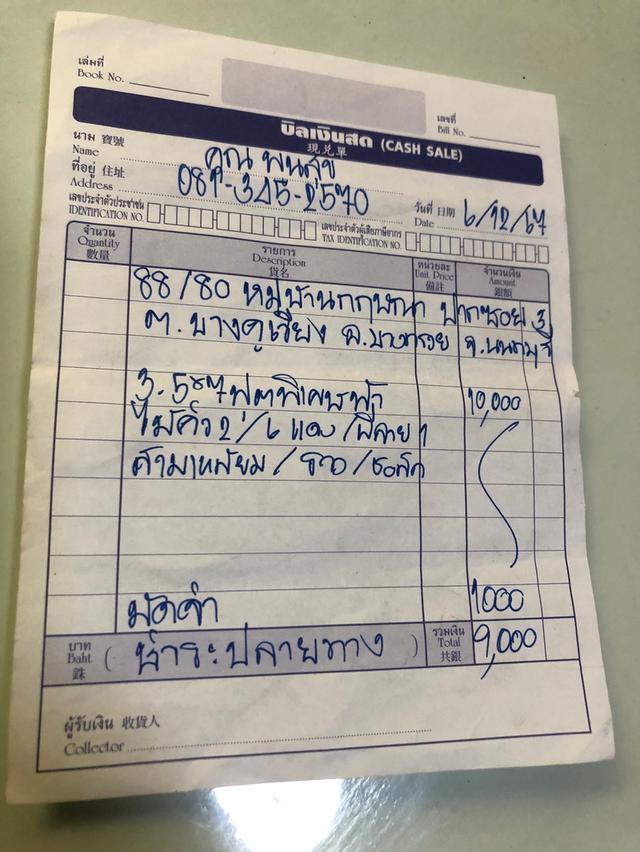 เล่มที่
Book No.
เลขที่
Bill No.
บิลเงินสด (CASH SALE)
現兑單
นาม 寶號
Name
คุณ พนสุข
ที่อยู่ 住址
Address
081-345-2570
วันที่ 日期
Date
6/12/67
เลขประจำตัวประชาชน
IDENTIFICATION NO.
เลขประจำตัวผู้เสียภาษีอากร
TAX IDENTIFICATION NO.
จำนวน
Quantity
數量
รายการ
Description
貨名
หน่วยละ
Unit Price
備註
จำนวนเงิน
Amount
銀額
88/80 หมู่บ้านกฤษณา ปากซอย 3
ต. บางคูเวียง อ. บางกรวย จ. นนทบุรี
10,000
ไม้คิ้ว 2 / 6 แดง /
มัดจำ 1000
บาท
Baht
銖
( ชำระปลายทาง )
รวมเงิน
Total
共銀
9,000
ผู้รับเงิน 收貨人
Collector